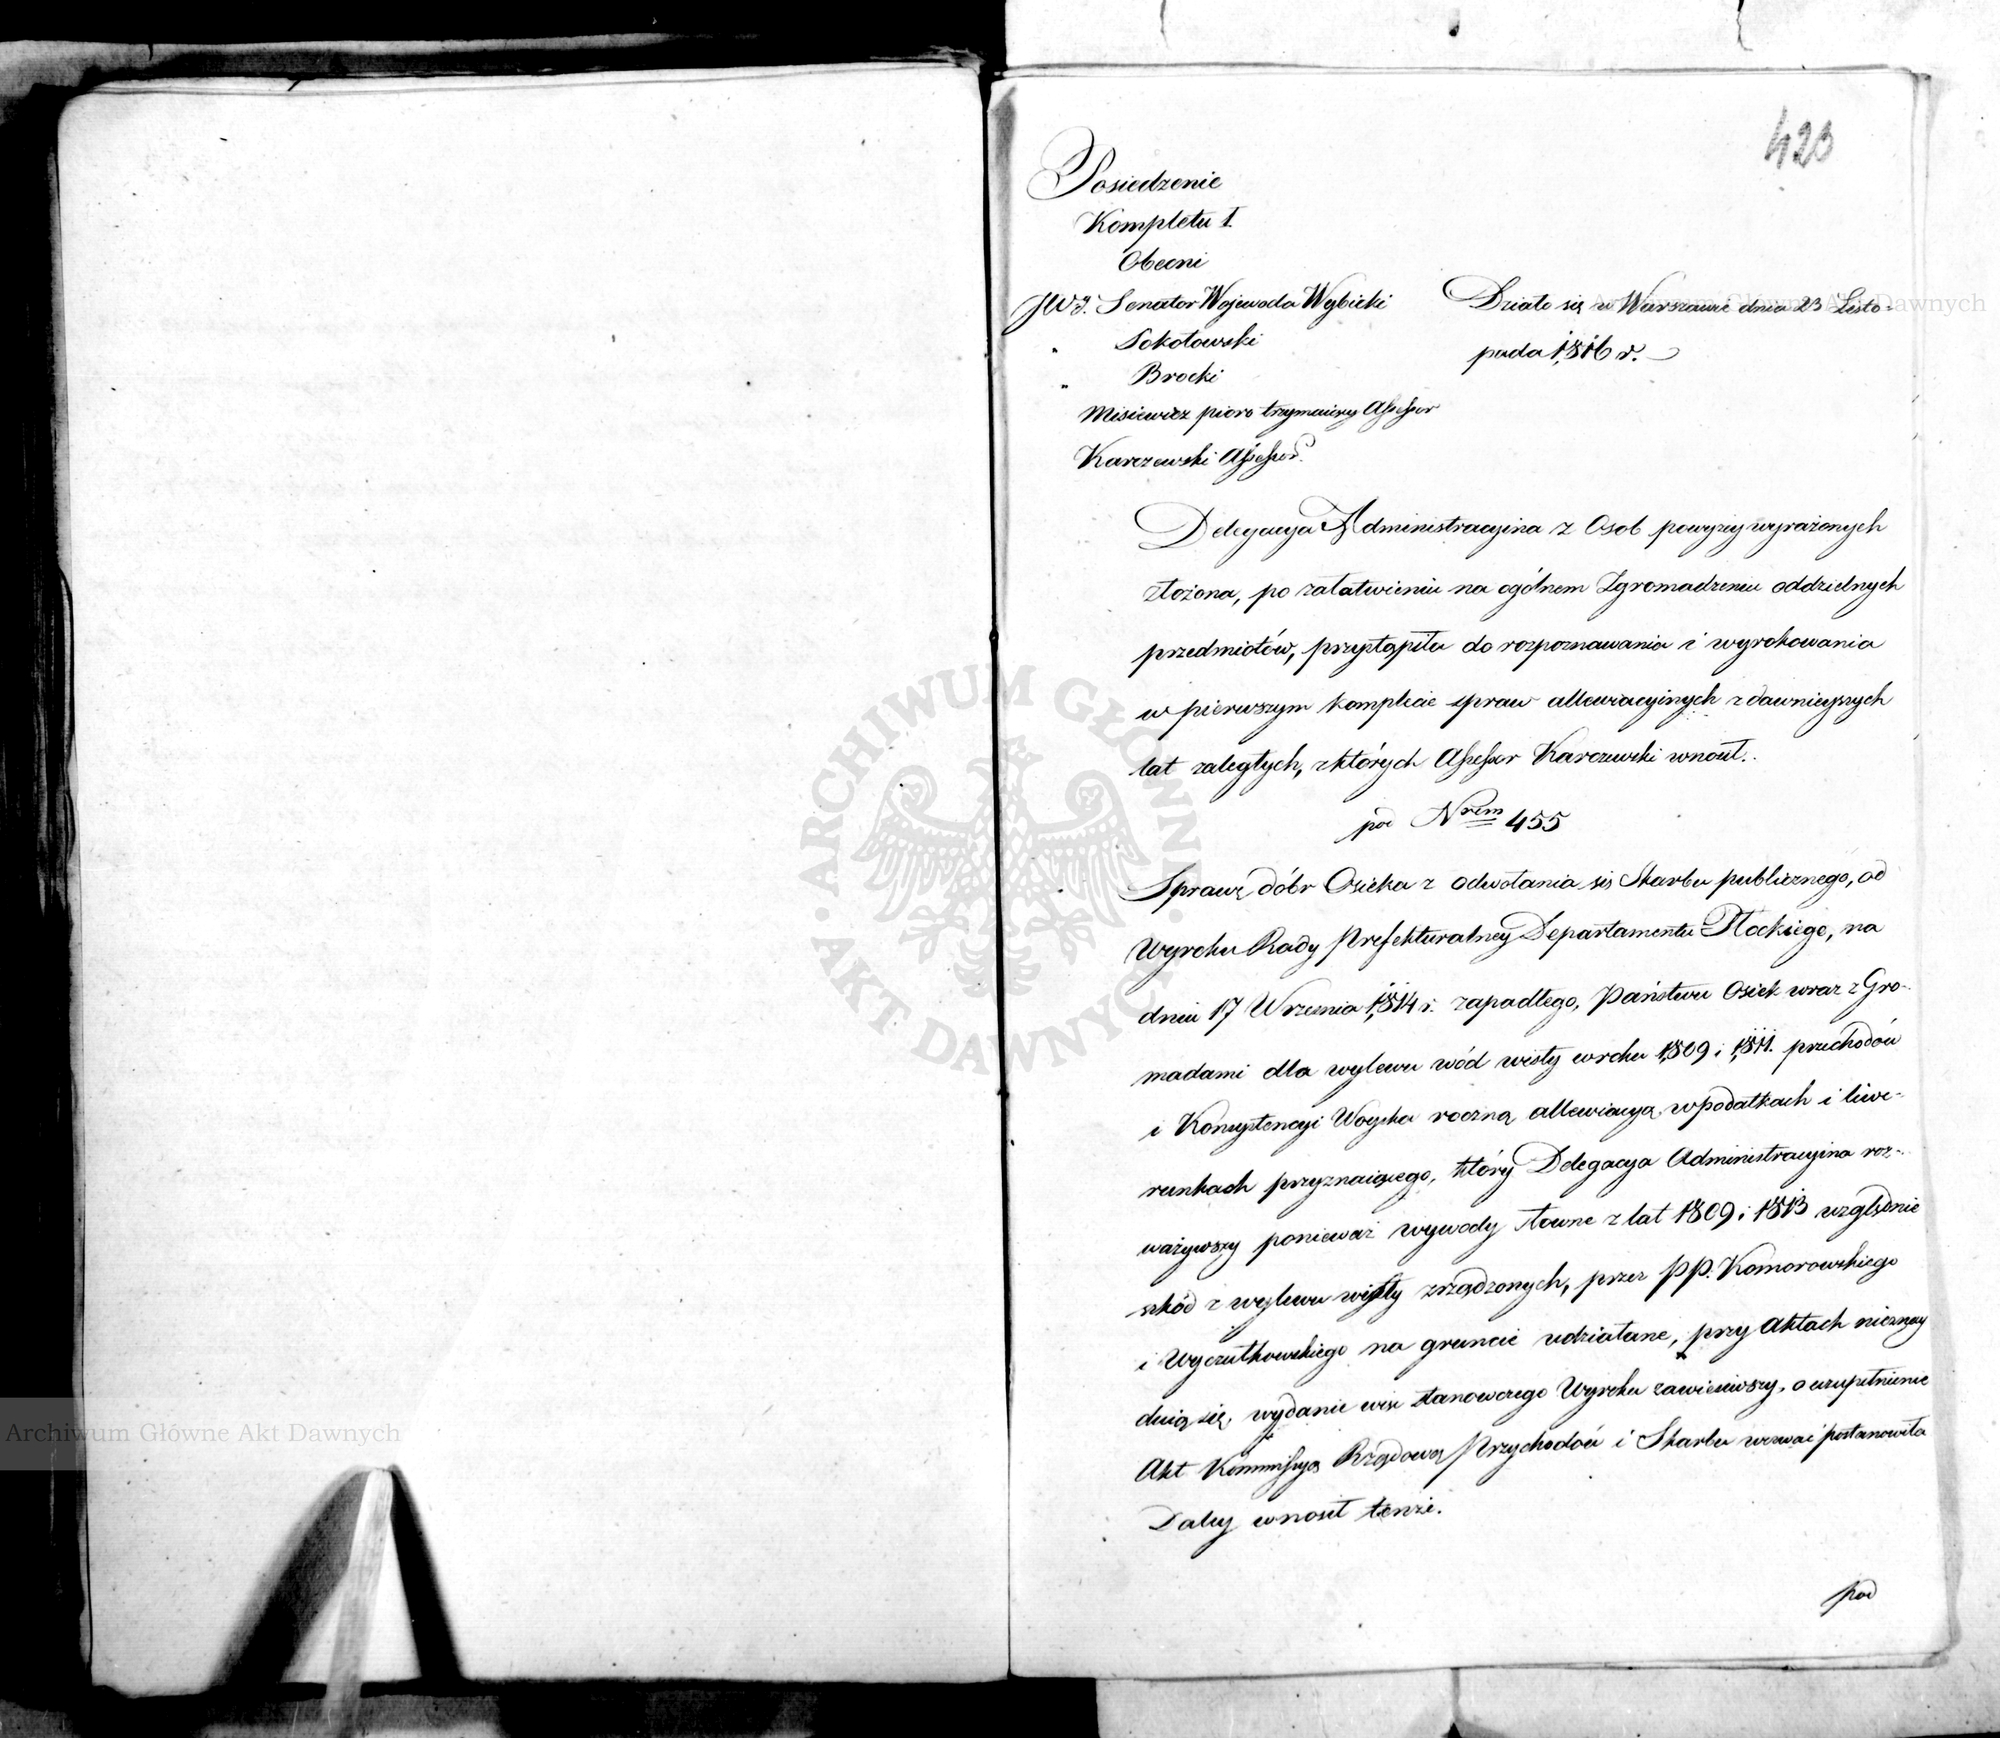 423
Posiedzenie
Kompletu I.
Obecni
JWJ. Senator Wojewoda Wybicki
" Sokołowski
" Brocki
Misiewicz pioro trzymaiący Assessor
Karczewski Assessor.
Działo się w Warszawie dnia 23 Listo-
pada 1816 r.
Delegacya Administracyina z Osob powyżey wyrażonych
złożona, po załatwieniu na ogólnem Zgromadzeniu oddzielnych
przedmiotów, przystąpiła do rozpoznawania i wyrokowania
w pierwszym komplecie spraw allewiacyinych z dawnieyszych
lat zaległych, z których Assessor Karczewski wnosił.
pod Nrem 455
Sprawę dóbr Osieka z odwołania się Skarbu publicznego, od
Wyroku Rady Prefekturalney Departamentu Płockiego, na
dniu 17 Września 1814 r. zapadłego, Państwu Osiek wraz z Gro-
madami dla wylewu wód wisły w roku 1809 i 1811. przechodów
i Konsystencyi Woyska roczną allewiacyą w podatkach i liwe-
runkach przyznaiącego, który Delegacya Administracyina roz-
ważywszy ponieważ wywody słowne z lat 1809 i 1813 względnie
szkód z wylewu wisły zrządzonych, przez PP. Komorowskiego
i Wyczułkowskiego na gruncie udziałane, przy Aktach nieznay
duią się, wydanie wise stanowczego Wyroku zawiesiwszy, o uzupełnienie
Akt Kommissyą Rządową Przychodów i Skarbu wezwać postanowiła
Daley wnosił tenże.
pod
Archiwum Główne Akt Dawnych
Archiwum Główne Akt Dawnych
ARCHIWUM GŁÓWNE AKT DAWNYCH